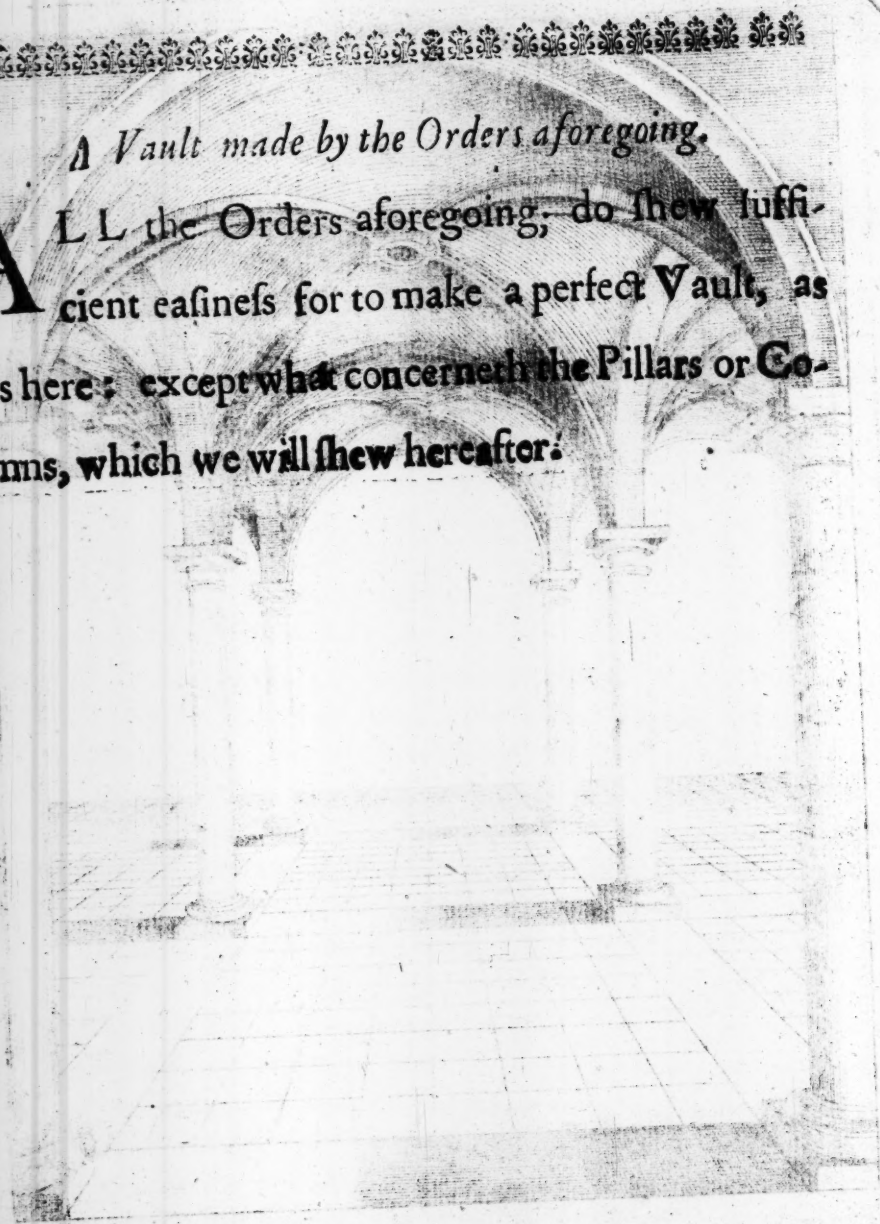 A Vault made by the Orders aforegoing.
ALL the Orders aforegoing; do ſhew ſuffi-
cient eaſineſs for to make a perfect Vault, as
s here: except what concerneth the Pillars or Co-
mns, which we will ſhew hereafter: